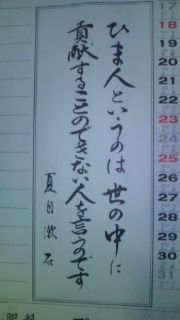 ひま人というのは世の中に
貢献することのできない人を言うのです
夏目漱石
17
18
19
20
21
22
23
24
25
26
27
28
29
30
31